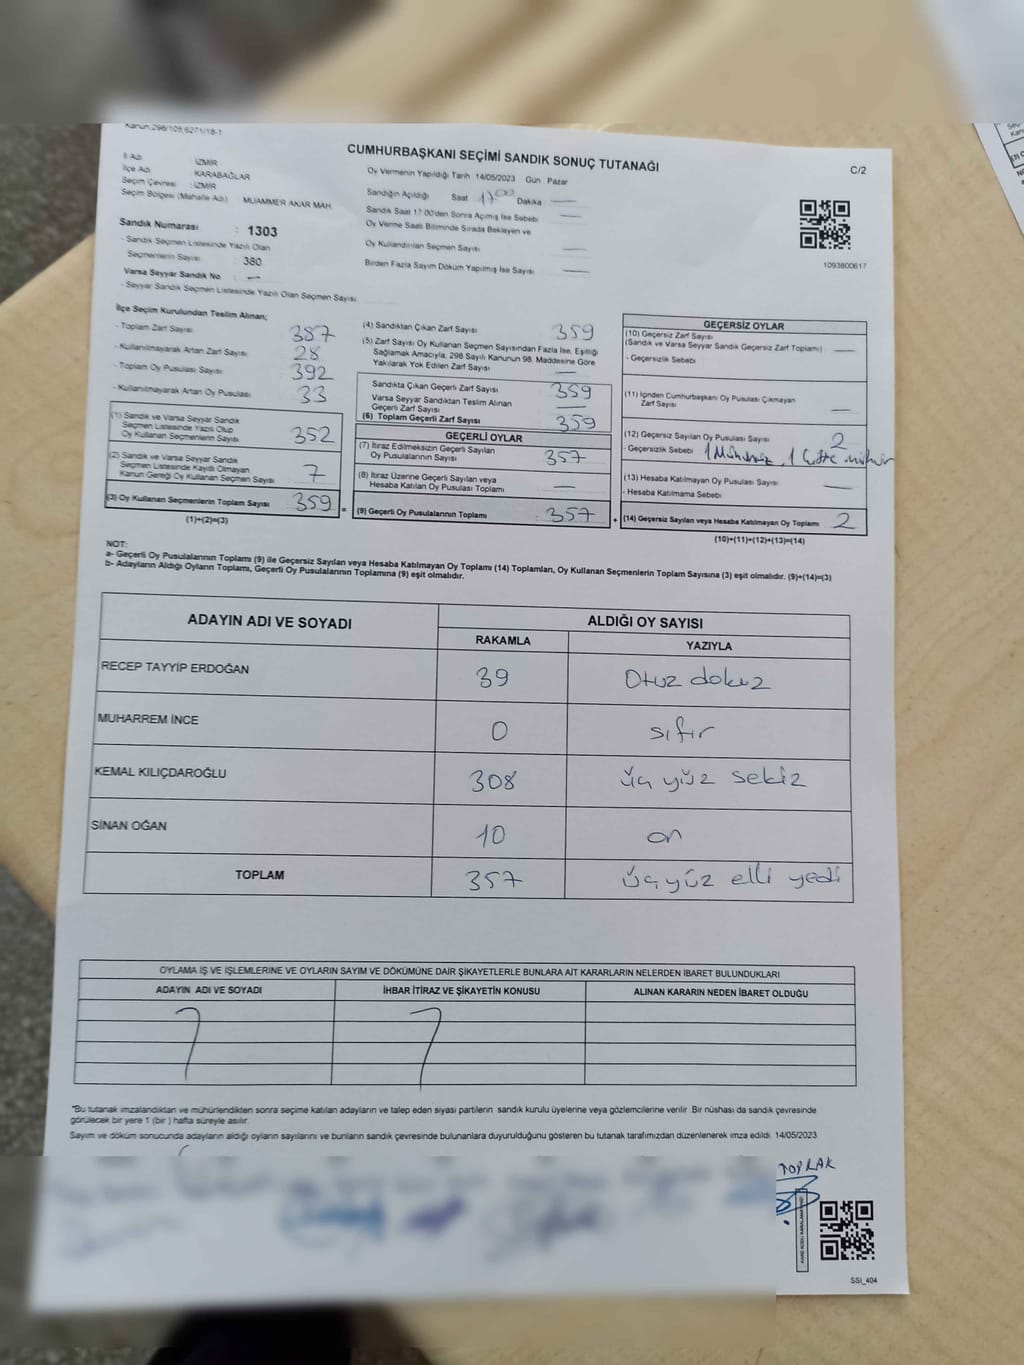 Kanun,298/105,6271/18-1
CUMHURBAŞKANI SEÇİMİ SANDIK SONUÇ TUTANAĞI
C/2
İl Adı İZMİR
İlçe Adı KARABAĞLAR
Seçim Çevresi : İZMİR
Seçim Bölgesi (Mahalle Adı) MUAMMER AKAR MAH.
Oy Vermenin Yapıldığı Tarih 14/05/2023 Gün Pazar
Sandığın Açıldığı Saat 17 00 Dakika —
Sandık Saat 17:00'den Sonra Açılmış İse Sebebi —
Oy Verme Saati Bitiminde Sırada Bekleyen ve
Oy Kullandırılan Seçmen Sayısı —
Birden Fazla Sayım Döküm Yapılmış İse Sayısı —
1093800617
Sandık Numarası : 1303
- Sandık Seçmen Listesinde Yazılı Olan
Seçmenlerin Sayısı : 380
Varsa Seyyar Sandık No : —
- Seyyar Sandık Seçmen Listesinde Yazılı Olan Seçmen Sayısı
İlçe Seçim Kurulundan Teslim Alınan;
- Toplam Zarf Sayısı 387
- Kullanılmayarak Artan Zarf Sayısı 28
- Toplam Oy Pusulası Sayısı 392
- Kullanılmayarak Artan Oy Pusulası 33
(1) Sandık ve Varsa Seyyar Sandık
Seçmen Listesinde Yazılı Olup
Oy Kullanan Seçmenlerin Sayısı 352
(2) Sandık ve Varsa Seyyar Sandık
Seçmen Listesinde Kaydı Olmayan
Kanun Gereği Oy Kullanan Seçmen Sayısı 7
(3) Oy Kullanan Seçmenlerin Toplam Sayısı 359 =
(1)+(2)=(3)
(4) Sandıktan Çıkan Zarf Sayısı 359
(5) Zarf Sayısı Oy Kullanan Seçmen Sayısından Fazla İse, Eşitliği
Sağlamak Amacıyla, 298 Sayılı Kanunun 98. Maddesine Göre
Yakılarak Yok Edilen Zarf Sayısı —
Sandıkta Çıkan Geçerli Zarf Sayısı 359
Varsa Seyyar Sandıktan Teslim Alınan
Geçerli Zarf Sayısı —
(6) Toplam Geçerli Zarf Sayısı 359
GEÇERLİ OYLAR
(7) İtiraz Edilmeksizin Geçerli Sayılan
Oy Pusulalarının Sayısı : 357
(8) İtiraz Üzerine Geçerli Sayılan veya
Hesaba Katılan Oy Pusulası Toplamı : —
(9) Geçerli Oy Pusulalarının Toplamı : 357 +
GEÇERSİZ OYLAR
(10) Geçersiz Zarf Sayısı
(Sandık ve Varsa Seyyar Sandık Geçersiz Zarf Toplamı) —
- Geçersizlik Sebebi
(11) İçinden Cumhurbaşkanı Oy Pusulası Çıkmayan
Zarf Sayısı —
(12) Geçersiz Sayılan Oy Pusulası Sayısı 2
- Geçersizlik Sebebi 1 Mühürsüz, 1 Çifte mühür
(13) Hesaba Katılmayan Oy Pusulası Sayısı —
- Hesaba Katılmama Sebebi
(14) Geçersiz Sayılan veya Hesaba Katılmayan Oy Toplamı 2
(10)+(11)+(12)+(13)=(14)
NOT:
a- Geçerli Oy Pusulalarının Toplamı (9) ile Geçersiz Sayılan veya Hesaba Katılmayan Oy Toplamı (14) Toplamları, Oy Kullanan Seçmenlerin Toplam Sayısına (3) eşit olmalıdır. (9)+(14)=(3)
b- Adayların Aldığı Oyların Toplamı, Geçerli Oy Pusulalarının Toplamına (9) eşit olmalıdır.
ADAYIN ADI VE SOYADI ALDIĞI OY SAYISI
RAKAMLA YAZIYLA
RECEP TAYYİP ERDOĞAN 39 Otuz dokuz
MUHARREM İNCE 0 sıfır
KEMAL KILIÇDAROĞLU 308 üç yüz sekiz
SİNAN OĞAN 10 on
TOPLAM 357 üç yüz elli yedi
OYLAMA İŞ VE İŞLEMLERİNE VE OYLARIN SAYIM VE DÖKÜMÜNE DAİR ŞİKAYETLERLE BUNLARA AİT KARARLARIN NELERDEN İBARET BULUNDUKLARI
ADAYIN ADI VE SOYADI İHBAR İTİRAZ VE ŞİKAYETİN KONUSU ALINAN KARARIN NEDEN İBARET OLDUĞU
"Bu tutanak imzalandıktan ve mühürlendikten sonra seçime katılan adayların ve talep eden siyasi partilerin sandık kurulu üyelerine veya gözlemcilerine verilir. Bir nüshası da sandık çevresinde
görülecek bir yere 1 (bir ) hafta süreyle asılır.
Sayım ve döküm sonucunda adayların aldığı oyların sayılarını ve bunların sandık çevresinde bulunanlara duyurulduğunu gösteren bu tutanak tarafımızdan düzenlenerek imza edildi. 14/05/2023
TOPRAK
SSİ_404